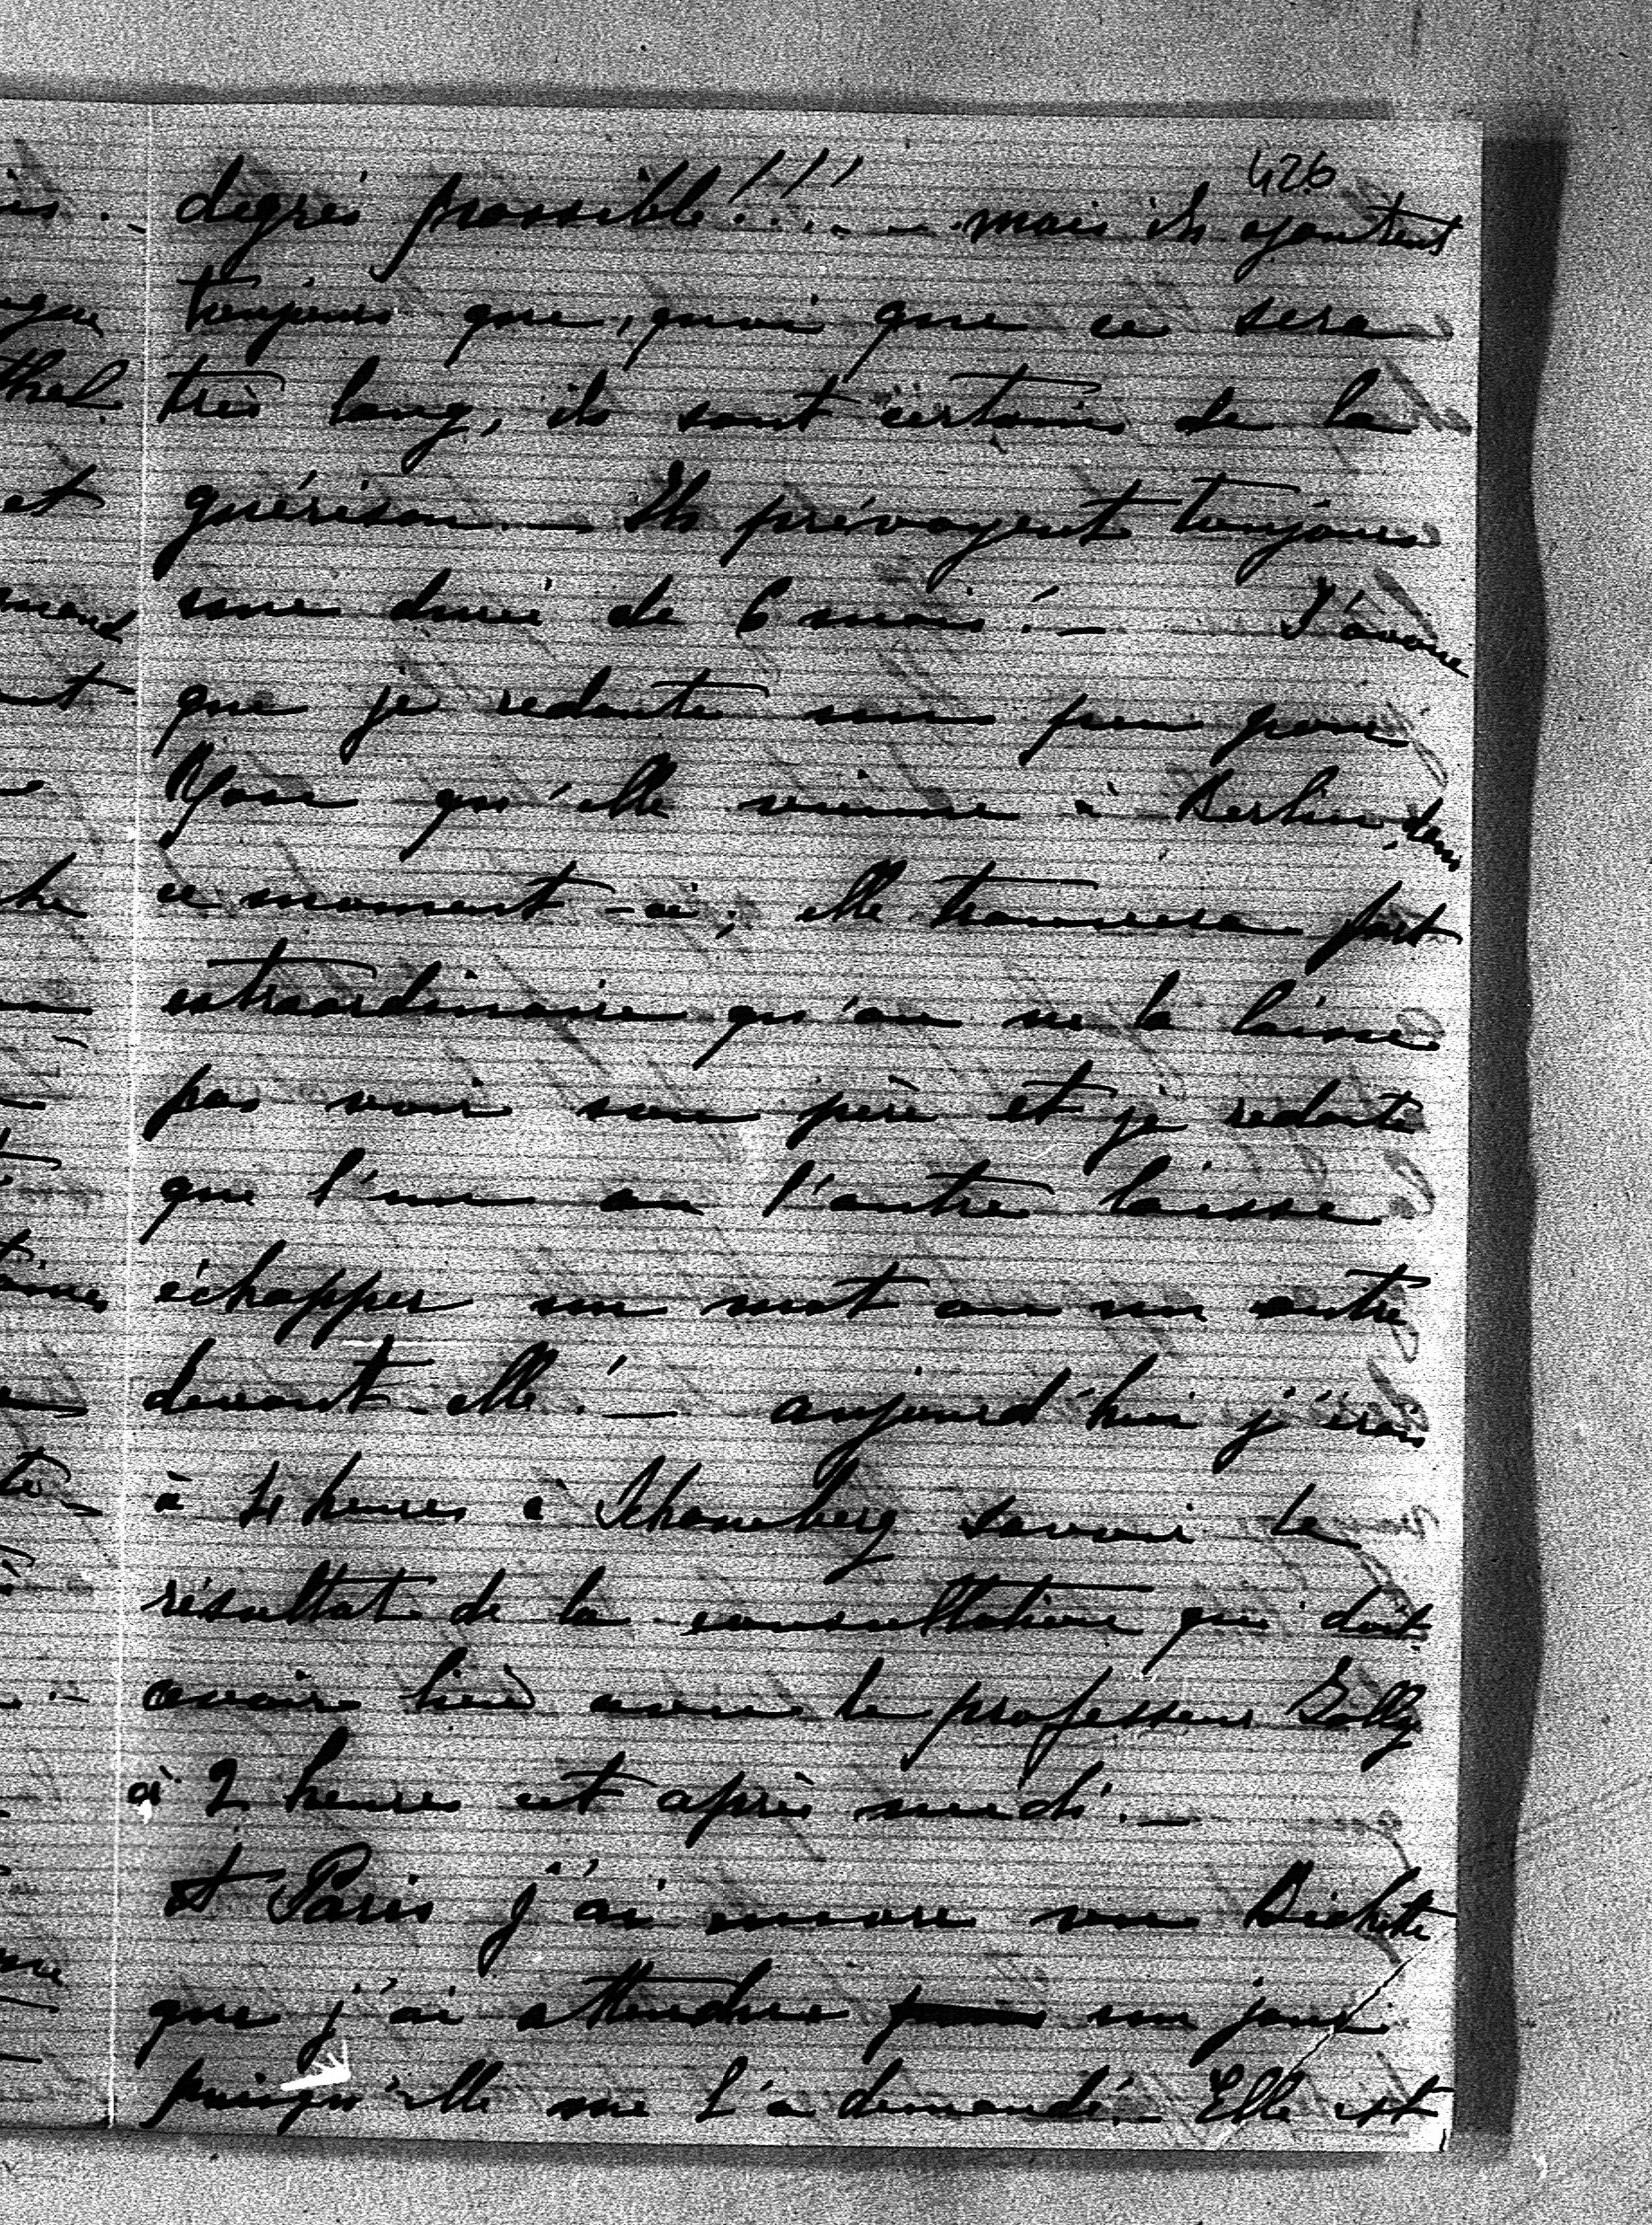 426
degrés possible!!! – mais ils ajoutent
toujours que, quoi que ce sera
très long, ils sont certains de la
guérison. – Ils prévoyent toujours
une durée de 6 mois! – J'avoue
que je redoute un peu pour
qu'elle vienne à Berlin dans
ce moment-ci; elle trouvera fort
extraordinaire qu'on ne la laisse
pas voir son père et je redoute
que l'un ou l'autre laisse
échapper un mot ou un autre
devant elle! – aujourd'hui j'irai
à 4 heures à Schoneberg savoir le
résultat de la consultation qui doit
avoir lieu avec le professeur Jolly
à 2 heures cet après midi. –
A Paris j'ai encore vu Bichette
que j'ai attendue un jour
puisqu'elle me l'a demandé. – Elle est